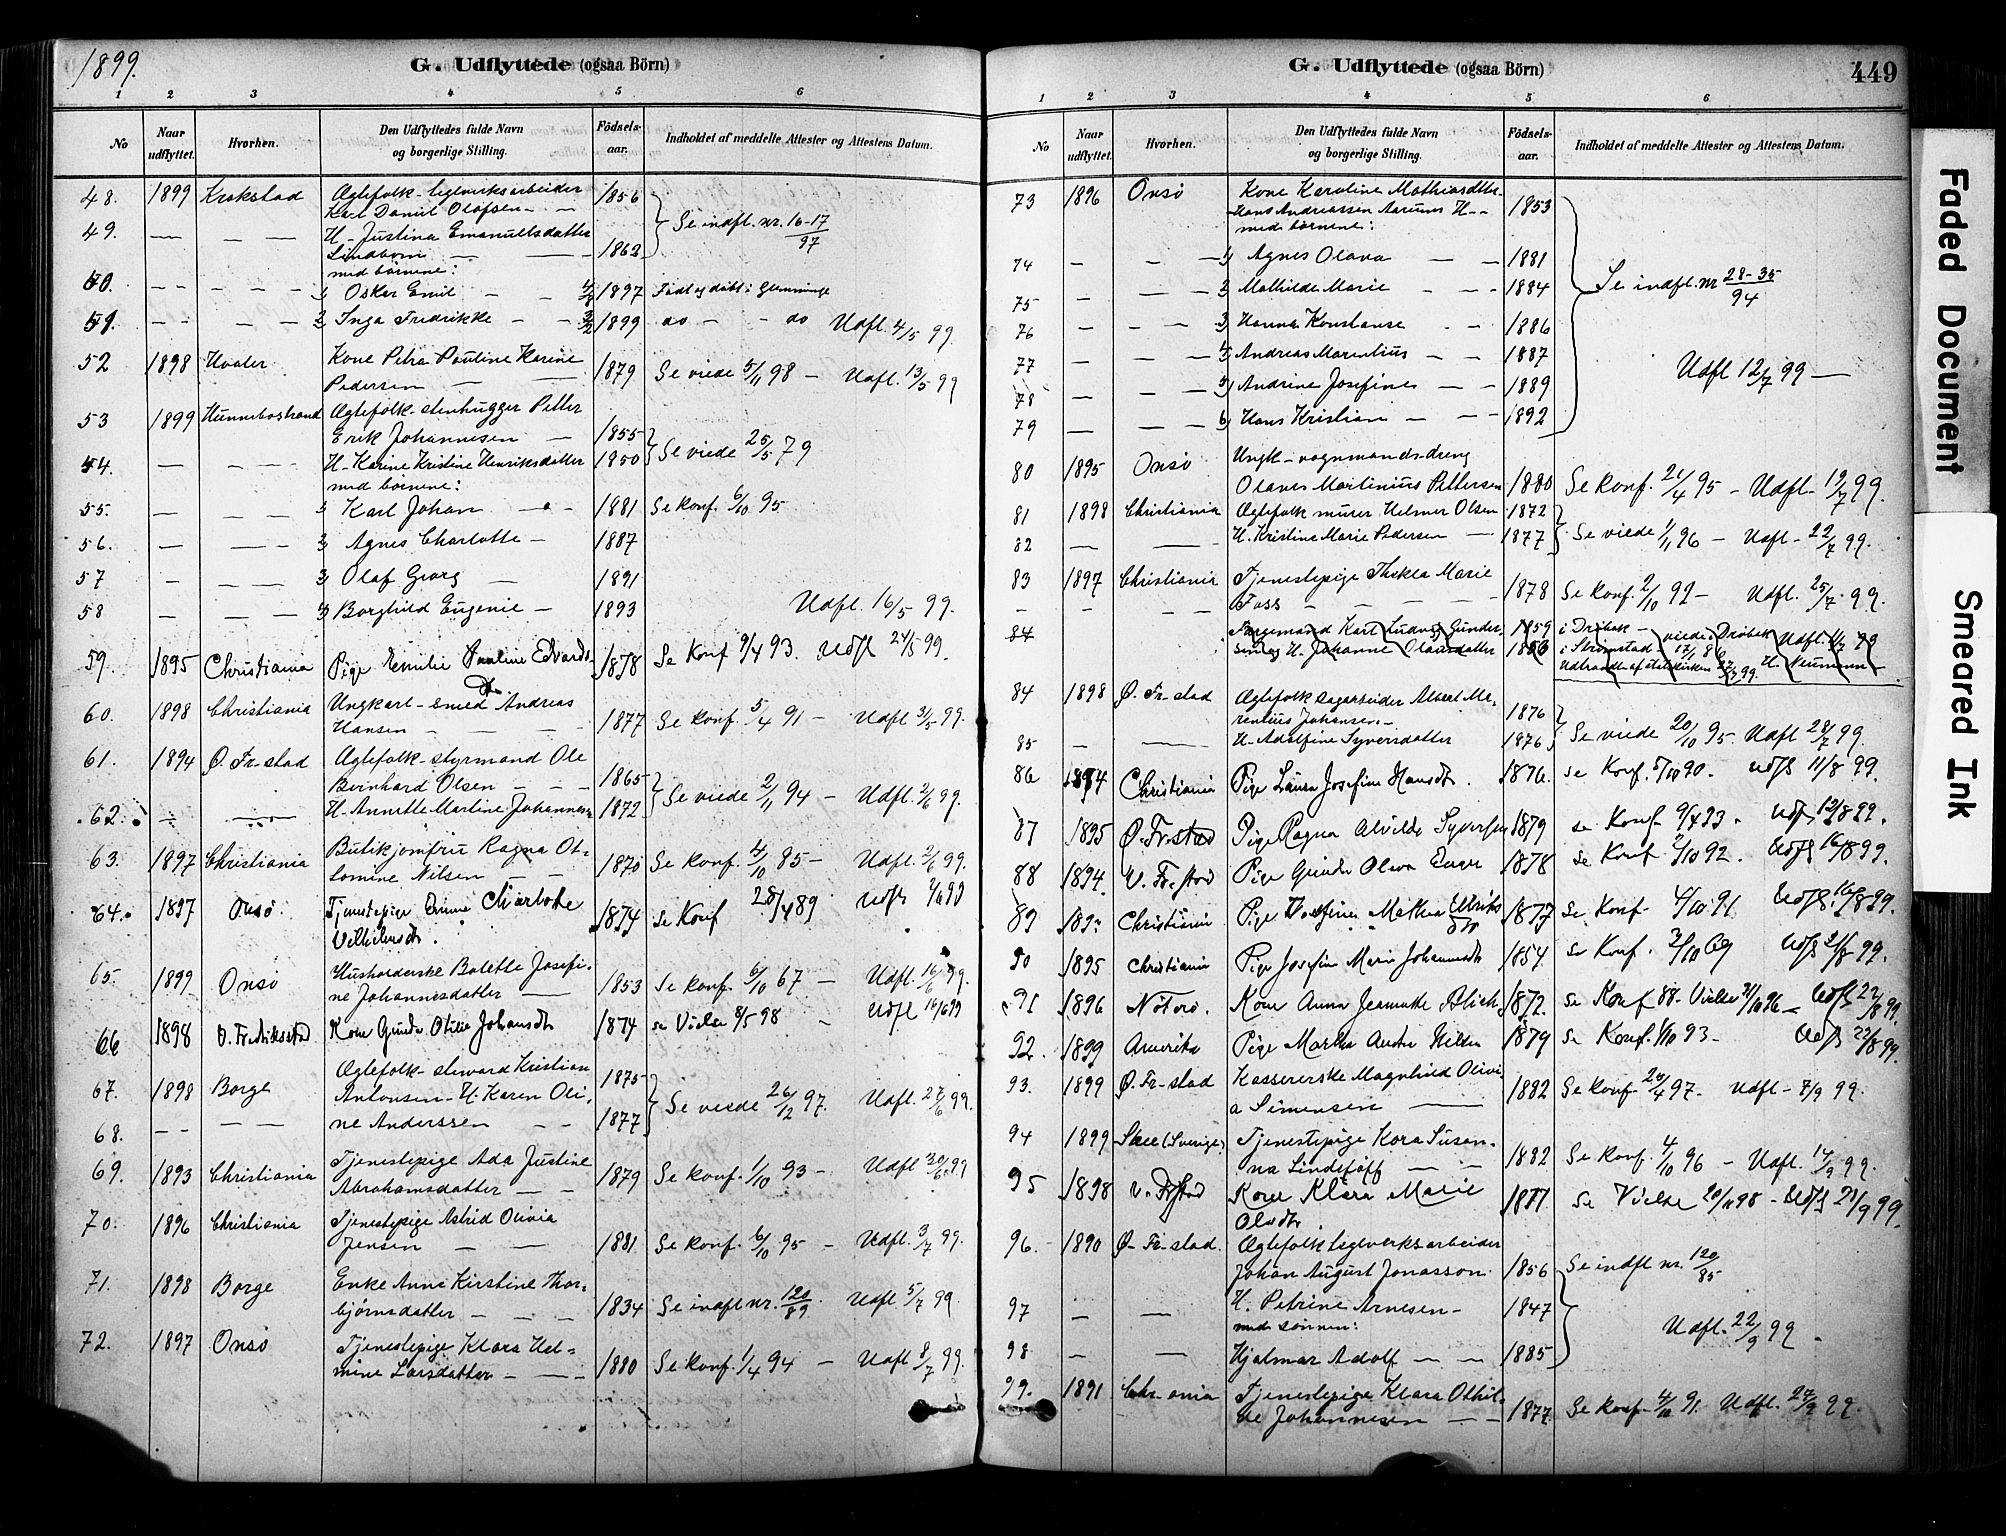 1899.
G. Udflyttede (ogsaa Börn)
1 2 3 4 5 6
No
Naar udflyttet.
Hvorhen.
Den Udflyttedes fulde Navn og borgerlige Stilling.
Födsels-aar.
Indholdet af meddelte Attester og Attestens Datum.
48. 1899 Krokstad Ægtefolk- teglverksarbeider
Karl Daniel Olofsen 1856
Se indfl. nr. 16-17/97
49. — — — H. Justina Emanuelsdatter
Lindbom 1862
med börnene:
50. — — — 1, Oskar Emil 1897 Födt og döbt i Glemminge
51. — — — 2, Inga Fredrikke 1899 do — do Udfl. 4/5 99.
52 1898 Hvaler Kone Petra Pauline Karine
Pedersen 1879 Se viede 5/11 98 — Udfl. 13/5 99
53 1899 Hunnebostrand Ægtefolk- stenhugger Petter
Erik Johannesen 1855
Se viede 25/5 79
54. — — H. Karine Kristine Henriksdatter 1850
med börnene:
55. — — 1, Karl Johan 1881 Se konf. 6/10 95
56. — — 2, Agnes Charlotte 1887
57 — — 3, Olaf Georg 1891
58 — — Borghild Eugenie 1893 Udfl. 16/5 99.
59. 1895 Christiania Pige Emilie Pauline Edvards-
dtr 1878 Se Konf 9/4 93. Udfl 24/5 99.
60. 1898 Christiania Ungkarl- smed Andreas
Hansen 1877 Se konf. 5/4 91 — Udfl. 31/5 99.
61. 1894 Ø. Fr-stad Ægtefolk- styrmand Ole
Bernhard Olsen 1865
Se viede 2/11 94 — Udfl. 2/6 99.
62. — — H. Annette Martine Johannesen 1872
63. 1897 Christiania Butikjomfru Ragna Ot-
lomine Nilsen 1870 Se konf. 4/10 85 — Udfl. 2/6 99.
64. 1897 Onsö. Tjenestepige Emma Charlotte
Vilhelmsdtr. 1874 se Konf 28/4 89 Udfl
65. 1899 Onsö Husholderske Bolette Josefi-
ne Johannesdatter 1853 Se konf. 6/10 67 — Udfl. 16/6 99.
66 1898 V. Fredriksstad Kone Gunda Otilie Johansdtr 1874 se Vielse 8/5 98 — Udfl 16/6 99
67. 1898 Borge Ægtefolk- steward Kristian
Antonsen- H. Karen Oli- 1875
Se viede 26/12 97. Udfl. 27/6 99.
68. — — — ne Anderssen 1877
69. 1893 Christiania Tjenestepige Ada Justine
Abrahamsdatter 1879 Se konf. 1/10 93 — Udfl 30/6 99
70. 1896 Christiania Tjenestepige Astrid Olivia
Jensen 1881 Se konf. 6/10 95 — Udfl. 3/7 99.
71. 1898 Borge Enke Anne Kirstine Thor-
björnsdatter 1834 Se indfl nr. 120/89. Udfl. 5/7 99.
72. 1897 Onsö Tjenestepige Klara Hel-
mine Larsdatter 1880 Se konf. 1/4 94 — Udfl 8/7 99.
G. Udflyttede (ogsaa Börn) 449
1 2 3 4 5 6
No
Naar udflyttet.
Hvorhen.
Den Udflyttedes fulde Navn og borgerlige Stilling.
Födsels-aar.
Indholdet af meddelte Attester og Attestens Datum.
73 1896 Onsö Kone Karoline Mathiasdttr.
Hans Andreassen Aarums H. 1853
med börnene:
74 — — 1, Agnes Olava 1881
75 — — 2, Mathilde Marie 1884
Se indfl. nr 28-35/94
76 — — 3, Hanna Konstanse 1886
77 — — 4, Andreas Marentius 1887
Udfl 12/7 99 —
78 — — 5, Andrine Josefine 1889
79 — — 6, Hans Kristian 1892
80 1895 Onsö Ungk- vognmandsdreng
Olaves Martinius Pettersen 1880 Se konf. 21/4 95 — Udfl. 19/7 99.
81 1898 Christiania Ægtefolk murer Helmer Olsen 1872
Se viede 1/11 96 — Udfl. 22/7 99.
82 — — H. Kristine Marie Pedersen 1877
83 1897 Christiania Tjenestepige Thekla Marie
Foss 1878 Se konf. 2/10 92 — Udfl. 25/7 99.
84 Karl Ludvig Gunder- 1859 i Dröbak — viede i Dröbak Udfl.
H. Johanne Olausdatter i Strømstad
84 1898 Ø. Fr-stad Ægtefolk sagarbeider Albert Ma-
rentius Johansen 1876
Se viede 20/10 95. Udfl 28/7 99.
85 — — H. Adolfine Syversdatter 1876
86 1894 Christiania Pige Laura Josefine Hansdtr. 1876. se Konf. 5/10 90. Udfl 11/8 99.
87 1895 Ø. Frstad Pige Ragna Alvilde Syversen 1879 se Konf 9/4 93. Udfl 12/8 99.
88 1894. V. Fr.stad Pige Gunda Olava 1878 se Konf 2/10 92. Udfl 16/8 99.
89 Christiania Pige Josefine Mathea 1877 se Konf. 4/10 91 Udfl. 16/8 99.
90 1895 Christiania Pige Josefine Marie Johannesdtr 1854 se Konf. 3/10 69 Udfl 21/8 99.
91 1896 Nötterö. Kone Anna Jeanette 1872. se Konf 88- Vielse Udfl 22/8 99.
92. 1899 Amerika Pige Martha 1879 se Konf. 1/10 93 — Udfl 22/8 99.
93. 1899 Ø. Fr-stad Kassererske Magnhild Olivi-
a Simensen 1882 Se konf. 25/4 97. Udfl — 7/9 99.
94 1899 Skee (Sverige) Tjenestepige Kora Susan-
na Lindelöff 1882 Se konf. 4/10 96 — Udfl. 14/9 99.
95 1898 V. Frstad Kone Klara Marie
Olsdtr. 1877 se Vielse 20/11 98 — Udfl 21/9 99.
96. 1890 Ø. Fr-stad. Ægtefolk teglverksarbeider
Johan August Jonasson 1856 Se indfl nr. 120/85
97 — — H. Petrine Arnesen 1847
med sönnen:
Udfl. 22/9 99.
98 — — Hjalmar Adolf 1885
99. 1891 Chr-ania Tjenestepige Klara Othil-
de Johannesen 1877 Se konf. 4/10 91. Udfl. 27/9 99.
Faded Document
Smeared Ink